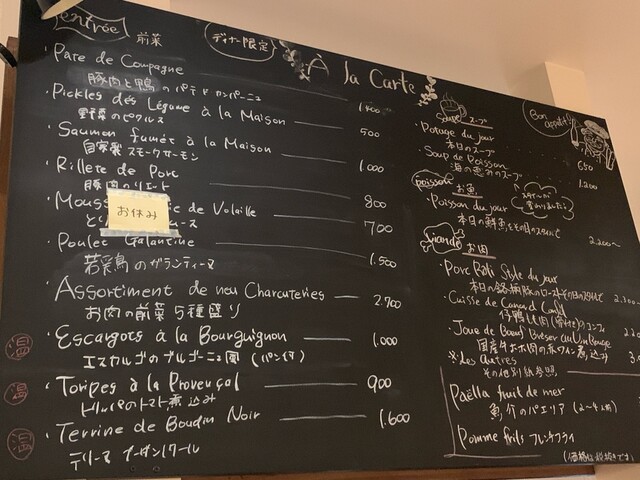 entrée 前菜
ディナー限定
à la Carte
・Pate de Campagne 1.400
豚肉と鴨のパテ ド カンパーニュ
・Pickles des Légume à la Maison 500
野菜のピクルス
・Saumon fumét à la Maison 1.000
自家製スモークサーモン
・Rillete de Porc 800
豚肉のリエット
・Mouss de Volaille 700
お休み
・Poulet Galantine 1.500
若鶏のガランティーヌ
・Assortiment de neu Charcuteries 2.700
お肉の前菜5種盛り
温 ・Escargots à la Bourguignon 1.000
エスカルゴのブルゴーニュ風 (パン付)
温 ・Toripes à la Provençal 900
トリッパのトマト煮込み
温 ・Terrine de Boudin Noir 1.600
テリーヌ ブーダンノワール
Soupe スープ
Bon appétit!
・Potage du jour 650
本日のスープ
・Soup de Poisson 1.200
海の幸のスープ
poisson お魚
・Poisson du jour 2.200〜
viande お肉
・Porc Style du jour
・Cuisse de Canard Confit
・Joue de Bœuf Breser au Vin Rouge
国産牛ホホ肉の赤ワイン煮込み
※Les Autres
その他別紙参照
Paëlla fruit de mer
魚介のパエリア (2〜4人前)
Pomme frits フレンチフライ
(価格は税抜きです)